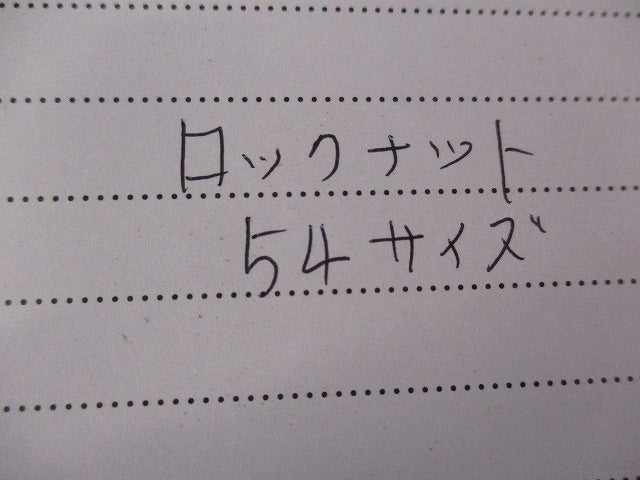 ロックナット
54サイズ